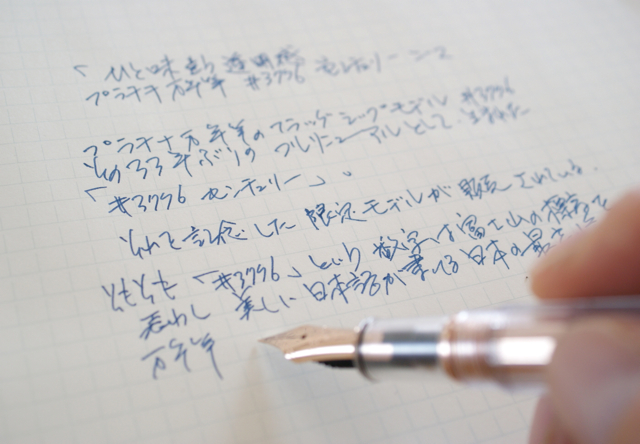 「ひと味違う透明感
プラチナ万年筆 #3776 センチュリー ニース
プラチナ万年筆のフラッグシップモデル #3776
その33年ぶりのフルリニューアルとして、生まれた
「#3776 センチュリー」。
それを記念した限定モデルが販売されている。
そもそも「#3776」という数字は富士山の標高を
表わし 美しい日本語が書ける日本の最高
万年筆